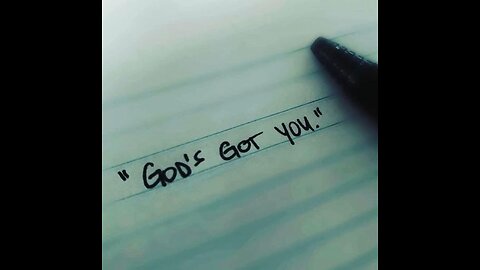 "God's Got You."